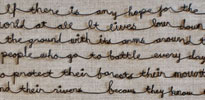 If there is any hope for the
world at all it lives low down
the ground with its arms around
people who go to battle every day
to protect their forests their mounta
nd their rivers because they know